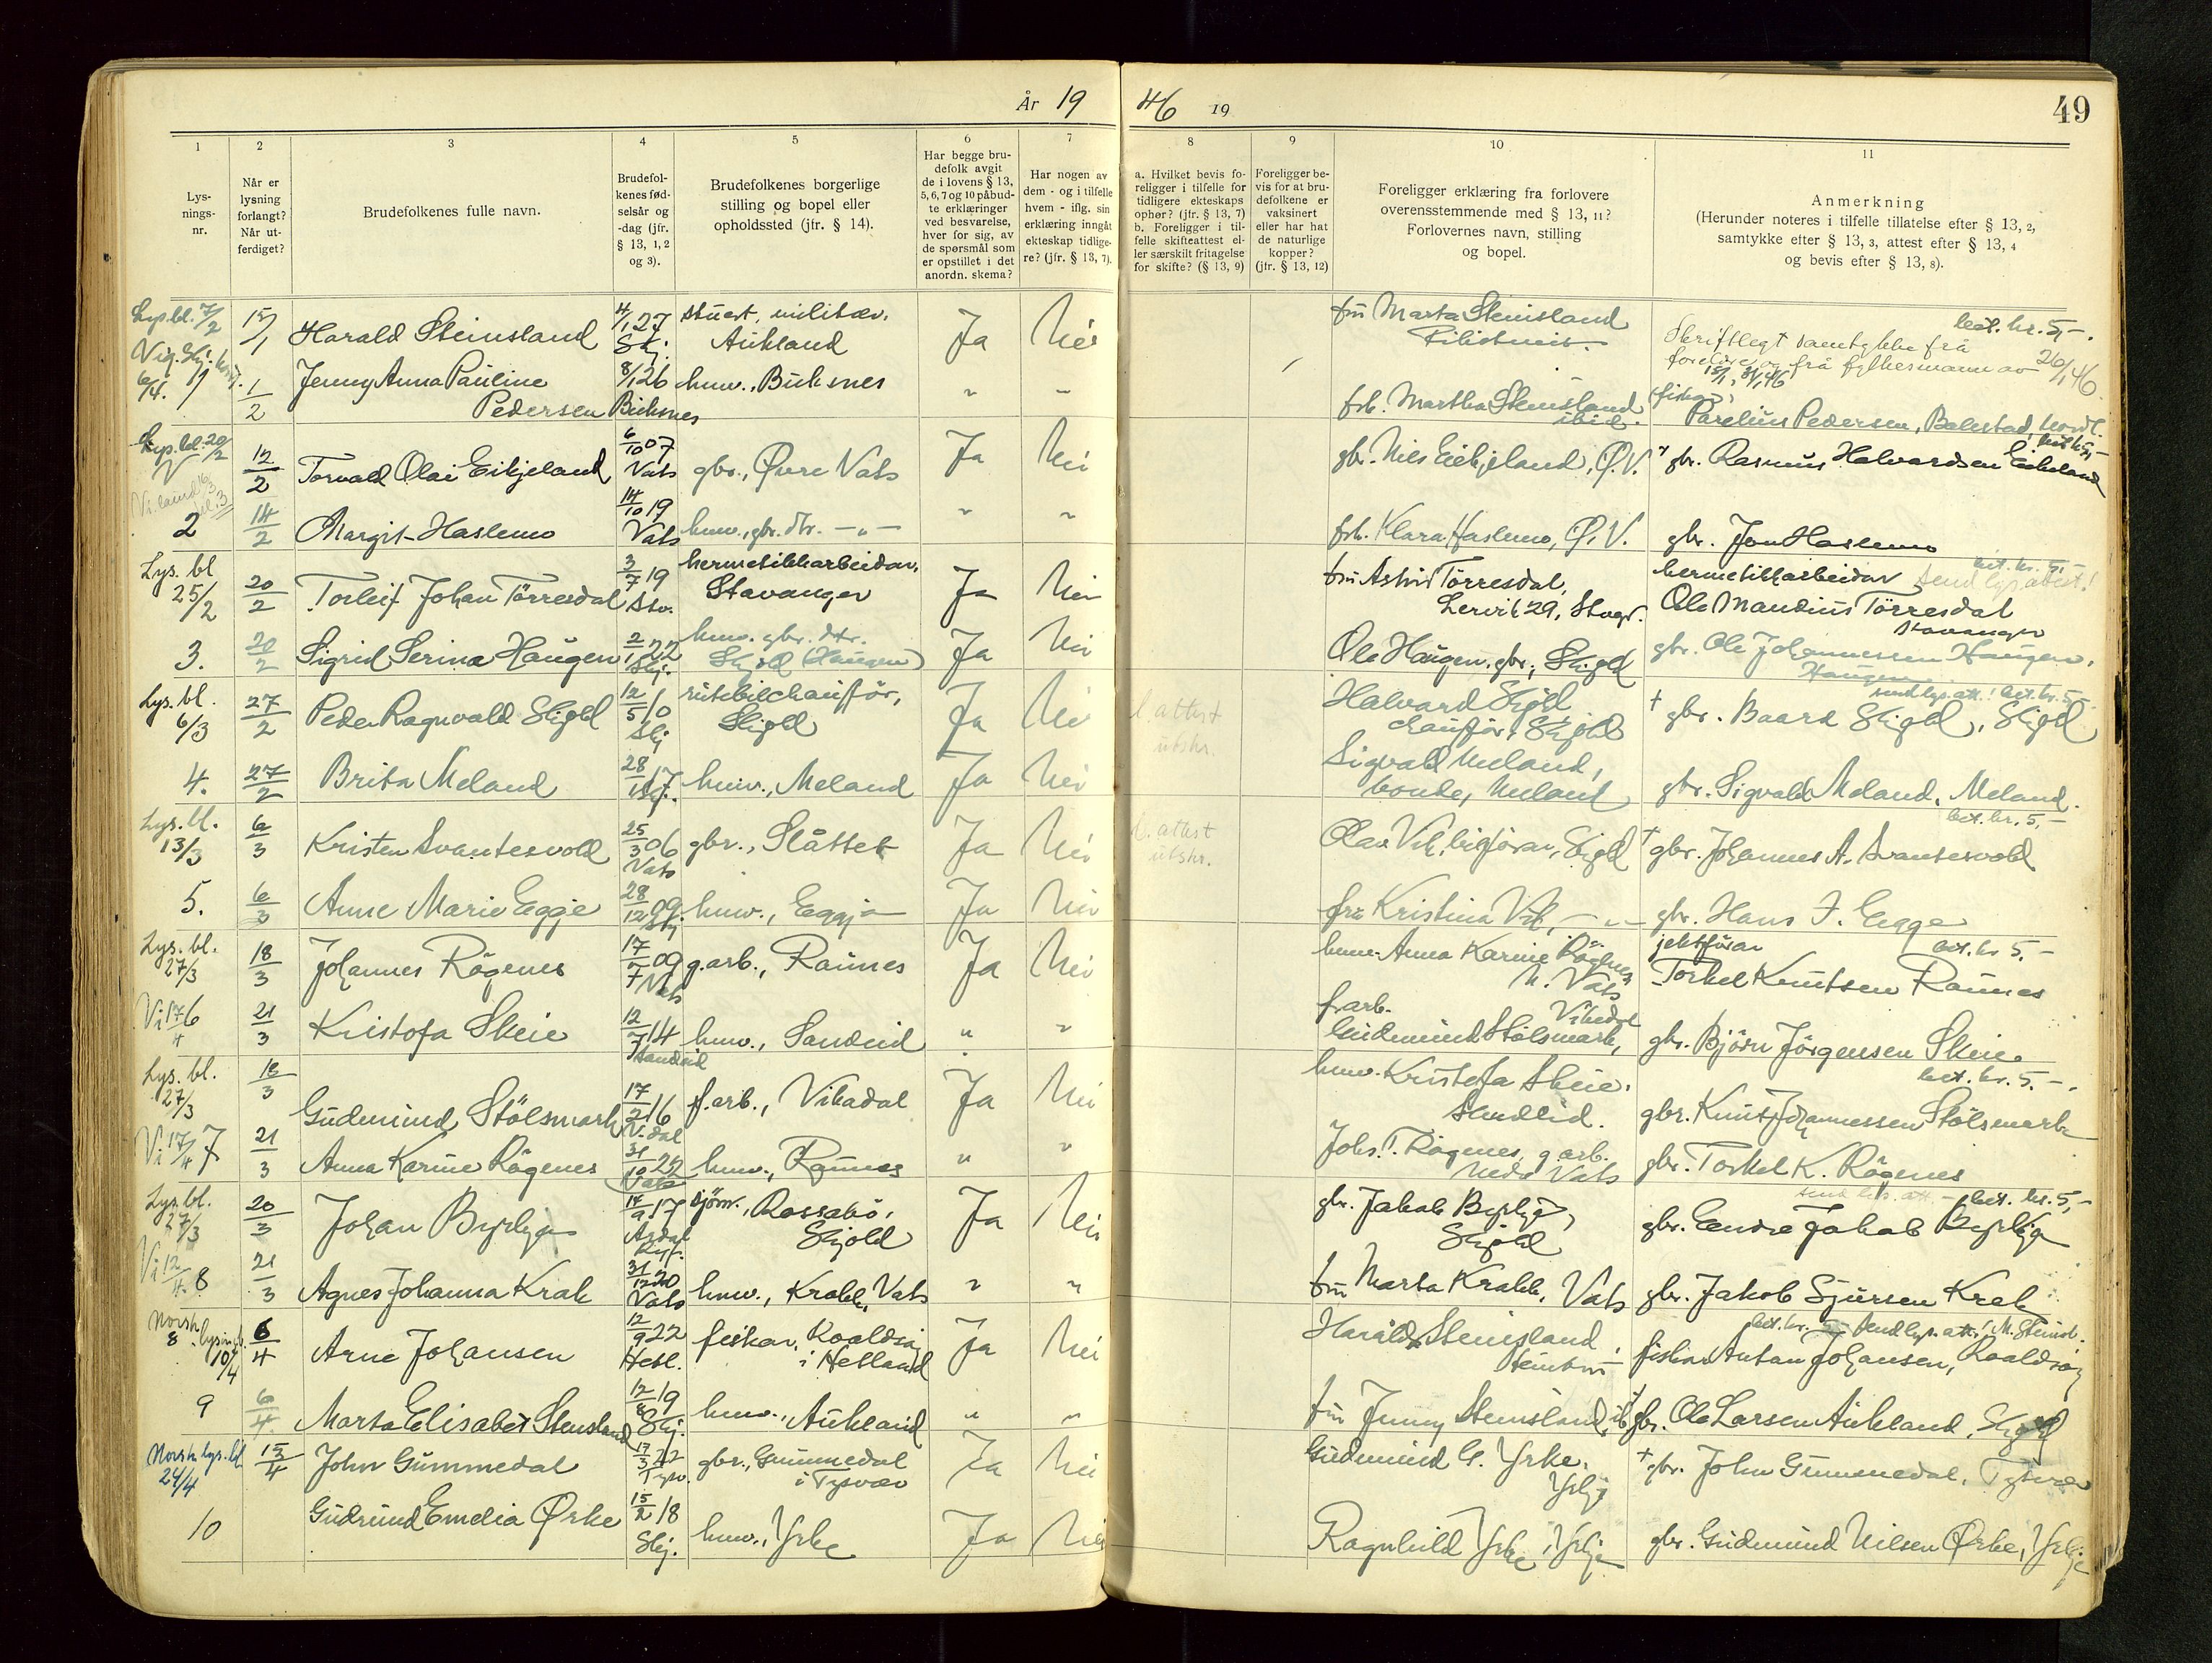 År 19
46 19
49
1 2 3 4 5 6 7 8 9 10 11
Lys-
nings-
nr.
Når er
lysning
forlangt?
Når ut-
ferdiget?
Brudefolkenes fulle navn.
Brudefol-
kenes fød-
selsår og
-dag (jfr.
§ 13, 1, 2
og 3).
Brudefolkenes borgerlige
stilling og bopel eller
opholdssted (jfr. § 14).
Har begge bru-
defolk avgit
de i lovens § 13,
5, 6, 7 og 10 påbud-
te erklæringer
ved besvarelse,
hver for sig, av
de spørsmål som
er opstillet i det
anordn. skema?
Har nogen av
dem - og i tilfelle
hvem - iflg. sin
erklæring inngått
ekteskap tidlige-
re? (jfr. § 13, 7).
a. Hvilket bevis fo-
religger i tilfelle for
tidligere ekteskaps
ophør? (jfr. § 13, 7)
b. Foreligger i til-
felle skifteattest el-
ler særskilt fritagelse
for skifte? (§ 13, 9)
Foreligger be-
vis for at bru-
defolkene er
vaksinert
eller har hat
de naturlige
kopper?
(jfr. § 13, 12)
Foreligger erklæring fra forlovere
overensstemmende med § 13, 11?
Forlovernes navn, stilling
og bopel.
Anmerkning
(Herunder noteres i tilfelle tillatelse efter § 13, 2,
samtykke efter § 13, 3, attest efter § 13, 4
og bevis efter § 13, 8).
Lys.bl. 7/2 15/1 Harald Steinsland 4/1 27 Skj. stuert, militær, Aukland Ja Nei fru Marta Steinsland bet. kr. 5,-.
Skriftlegt samtykke frå
foreldre og frå fylkesmann av 26/1 46.
1 1/2 Jenny Anna Pauline
Pedersen 8/1 26 Buksnes husv., Buksnes " - frk. Martha Steinsland ibid. (fiskar) Parelius Pedersen, Balestad, Nordl.
Lys.bl. 20/2 12/2 Torvald Olai Eikjeland 6/10 07 Vats gbr., Øvre Vats Ja Nei gbr. Nils Eikjeland, Ø.V. gbr. Rasmus Halvardsen Eikeland
2 14/2 Margit Haslemo 14/10 19 Vats husv., gbr. dtr. -"- " " frk. Klara Haslemo, Ø.V. gbr. Jon Haslemo
Lys. bl 25/2 20/2 Torleif Johan Törresdal 3/7 19 Stv. hermetikkarbeidar, Stavanger Ja Nei fru Astrid Törresdal,
Lervik 29, Stvgr. hermetikkarbeidar bet. kr. 5,- Send lys.attest!
Ole Mandius Törresdal
Stavanger
3. 20/2 Sigrid Serina Haugen 2/1 22 Skj. husv. gbr. dtr.
Skjold (Haugen) Ja Nei Ole Haugen, gbr., Skjold gbr. Ole Johannessen Haugen,
Haugen
Lys. bl. 6/3 27/2 Peder Ragnvald Skjold 12/5 10 Skj rutebilchauffør,
Skjold Ja Nei l. attest
utskr. Halvard Skjold
chauffør, Skjold send lys.att.! bet. kr. 5-
† gbr. Baard Skjold, Skjold
4. 27/2 Brita Meland 28/1 17 Skj. husv., Meland Ja Nei Sigvald Meland,
bonde, Meland gbr. Sigvald Meland, Meland.
Lys. bl. 13/3 6/3 Kristen Svantesvold 25/3 06 Vats gbr., Slåttet Ja Nei l. attest
utskr. Olav Vik, Skjold bet. kr. 5,-
† gbr. Johannes A. Svantesvold
5. 6/3 Anne Marie Eggje 28/12 09 Skj. husv., Eggja Ja Nei fru Kristina Vik, -"- gbr. Hans J. Eegge
Lys. bl. 27/3 18/3 Johannes Rögenes 17/7 09 Vats g.arb., Raunes Ja Nei husv. Anna Karine Rögenes
N. Vats jektförar bet. kr 5.-
Torkel Knutsen Raunes
Vi 17/4 6 21/3 Kristofa Skeie 12/7 14 Sandeid husv., Sandeid " " f.arb.
Gudmund Stölsmark, Vikedal gbr. Björn Jörgensen Skeie
Lys. bl. 27/3 18/3 Gudmund Stölsmark 17/2 16 V.dal f.arb., Vikadal Ja Nei husv. Kristofa Skeie,
Sandeid. bet. kr. 5.-.
gbr. Knut Johannessen Stölsmark
Vi 17/4 7 21/3 Anna Karine Rögenes 31/10 22 Vats husv., Raunes " " Johs. T. Rögenes, g.arb.
Nedre Vats gbr. Torkel K. Rögenes
Lys.bl. 27/3 20/3 Johan Byrkja 17/9 17 Årdal Ryf. sjöm., Rossabö,
Skjold Ja Nei gbr. Jakob Byrkja,
Skjold send lys. att.- bet. kr. 5,-
gbr. Endre Jakob Byrkja
Vi 12/4 8 21/3 Agnes Johanna Krak 31/12 20 Vats husv., Krakk, Vats " " fru Marta Krakk, Vats gbr. Jakob Sjursen Krak
Norsk
8 lysingsbl.
10/4 6/4 Arne Johansen 12/9 22 Hetl. fiskar, Roaldsøy
i Hetland Ja Nei Harald Steinsland bet. kr. 5- Send lys. att.!
fiskar Antan Johansen, Roaldsøy
9 6/4 Marta Elisabet Stensland 12/8 19 Skj. husv., Aukland " " fru Jenny Steinsland, ib. † gbr. Ole Larsen Aukland, Skjold
Norsk lys.bl 24/4 15/4 John Gummedal 17/3 22 Tysv. gbr., Gummedal
i Tysvær Ja Nei Gudmund G. Yrke,
Yrkje † gbr. John Gummedal, Tysvær
10 Gudrund Emelia Ørke 15/2 18 Skj. husv., Yrke Ja Nei Ragnhild Yrke, Yrkje gbr. Gudmund Nilsen Ørke, Yrkje